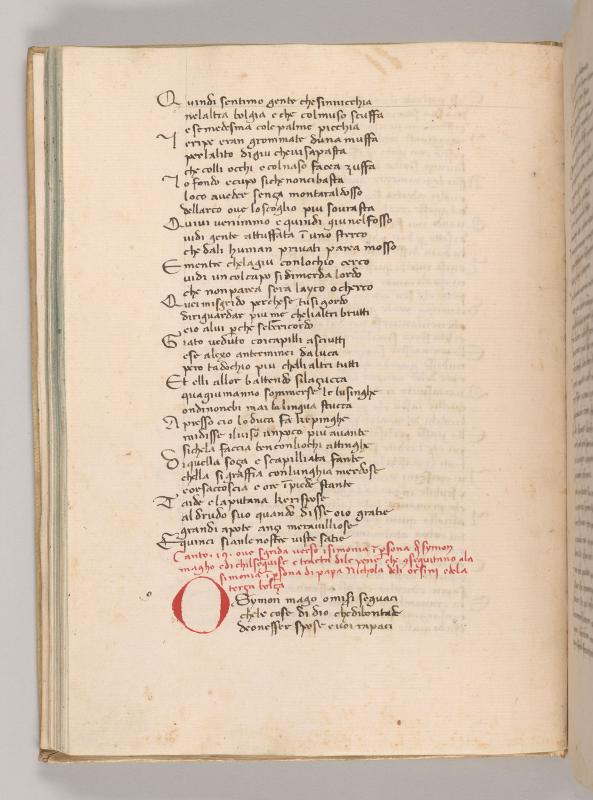 Q uindi sentimo gente chesinnicchia
nelaltra bolgia e che colmuso scuffa
e semedesma cole palme picchia
I eripe eran grommate duna muffa
perlalito digiu chevisapasta
che colli occhi e colnaso facea zuffa
I o fondo e cupo sichenoncibasta
loco avedere senza montaraldosso
dellarco ove loscoglio piu sourasta
Q uivi venimmo e quindi giunelfosso
vidi gente attuffata ī uno sterco
che dali human privati parea mosso
E mentre chelagiu conlochio cerco
vidi un colcapo si dimerda lordo
che non parea sera layco o cherco
Q uei misgrido perchese tusi gordo
diriguardar piu me chelialtri brutti
e io alui p̱che seben ricordo
G ia to veduto coicapilli asciutti
e se alexo anterminei daluca
pero tadochio piu chelli altri tutti
Et elli allor battendo silazucca
quagiu manno sommerse le lusinghe
ondinonebbi mai lalingua stucca
A presso cio loduca fa kepinghe
midisse ilviso unpoco piu avante
sichela faccia tenconliochi attinghe
Di quella soza e scapilliata fante
chella si graffia conlunghia merdose
e or saccoscia e ore ī piede stante
T aide e laputana ke rispose
al drudo suo quando disse oio gratie
grandi apote anzi meravilliose
E quinci sianle nostre viste satie
Canto .19. ove sgrida verso isimonia ī p̱sona di symon
magho e di chilseguise e tracta dile pene che 9seguitano ala
simonia ī p̱sona di papa Nichola deli orsini edela
terza bolgia
o
O Symon mago o misri seguaci
chele cose di dio chedibontade
deonesser spose e voi rapaci